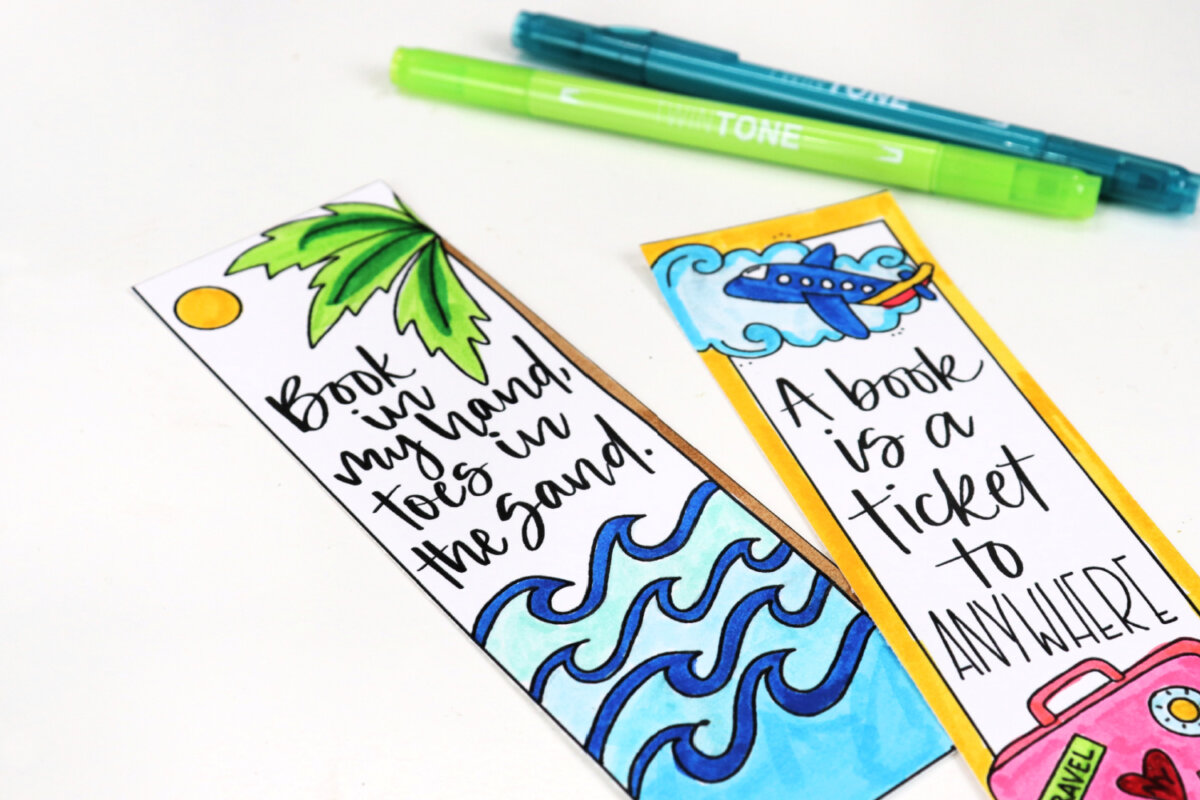 TWINTONE
TWINTONE
Book
in
my hand,
toes in
the sand.
A book
is a
ticket
to
ANYWHERE